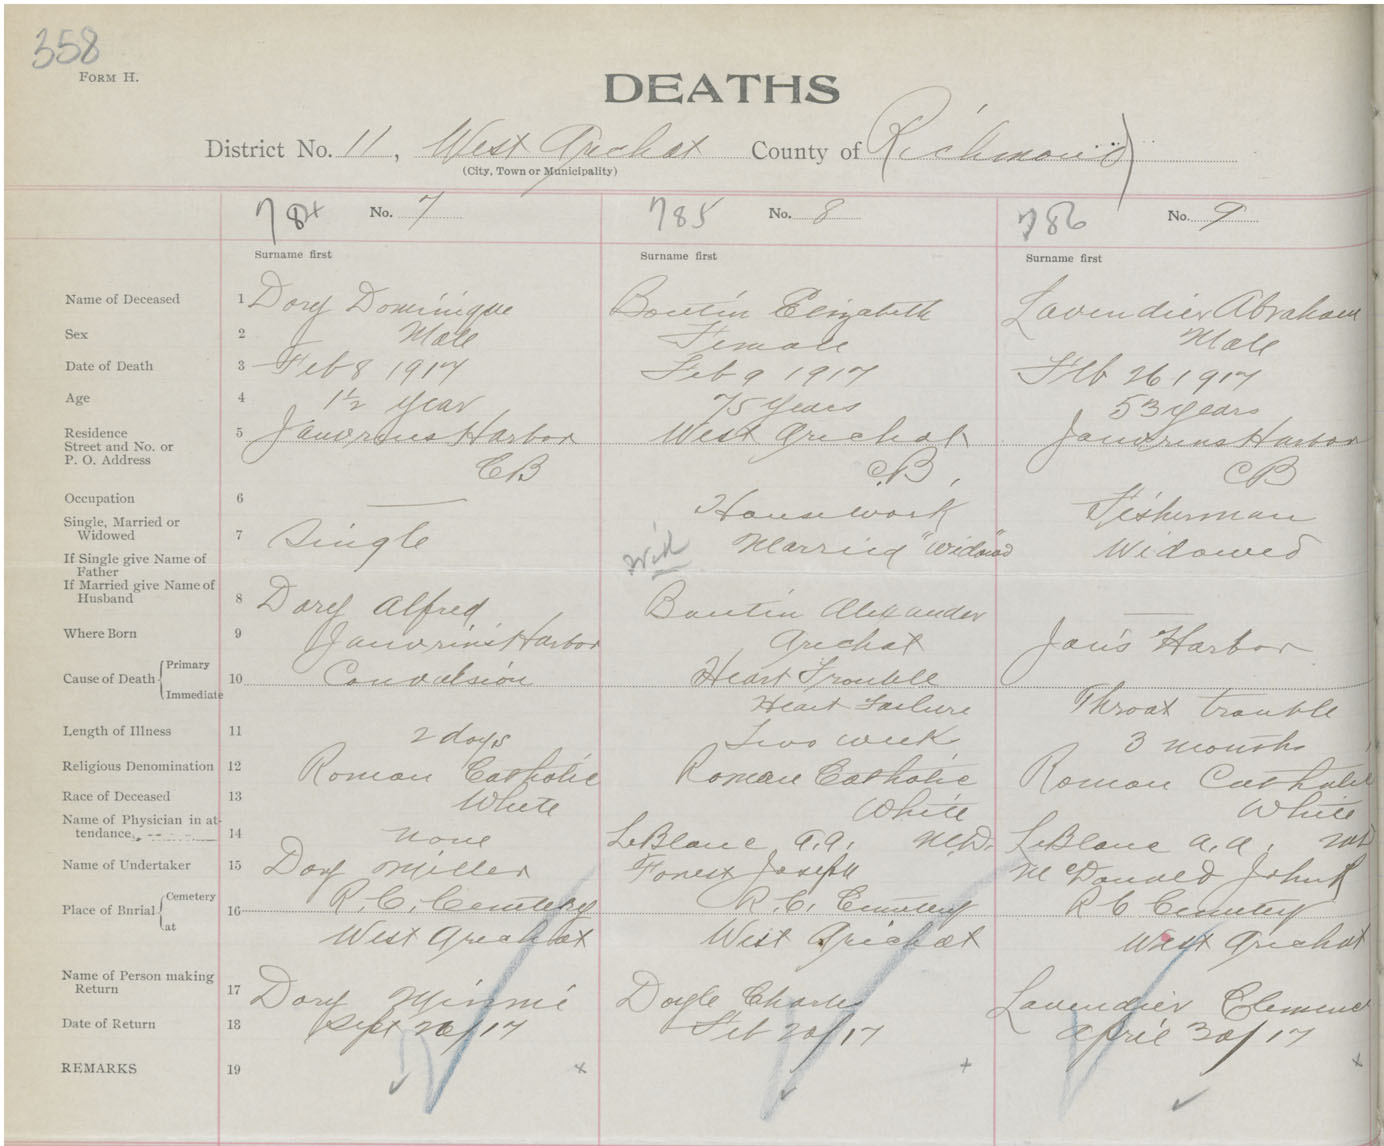 358
FORM H.
DEATHS
District No. 11, West Arichat County of Richmond
(City, Town or Municipality)
784 No. 7 785 No. 8 786 No. 9
Surname first Surname first Surname first
Name of Deceased 1 Dory Dominique Boutin Elizabeth Lavendier Abraham
Sex 2 Male Female Male
Date of Death 3 Feb 8 1917 Feb 9 1917 Feb 26 1917
Age 4 1½ year 75 years 53 years
Residence
Street and No. or 5 Janvrins Harbor West Arichat Janvrins Harbor
P. O. Address CB CB CB
Occupation 6 — Housework Fisherman
Single, Married or
Widowed 7 Single Wid Married "Widowed" Widowed
If Single give Name of
Father
If Married give Name of
Husband 8 Dory Alfred Boutin Alexander —
Where Born 9 Janvrin's Harbor Arichat Jan's Harbor
Cause of Death Primary 10 Convulsion Heart Trouble
Immediate Heart Failure Throat trouble
Length of Illness 11 2 days Two week 3 months
Religious Denomination 12 Roman Catholic Roman Catholic Roman Catholic
Race of Deceased 13 White White White
Name of Physician in at-
tendance, 14 None LeBlanc A.A. M.D. LeBlanc A.A. MD
Name of Undertaker 15 Dory Miller Forest Joseph McDonald John
Place of Burial Cemetery 16 R.C. Cemetery R.C. Cemetery R C Cemetery
at West Arichat West Arichat West Arichat
Name of Person making
Return 17 Dory Minnie Doyle Charles Lavendier Clemence
Date of Return 18 Sept 20/17 Feb 20/17 April 30/17
REMARKS 19 x + x